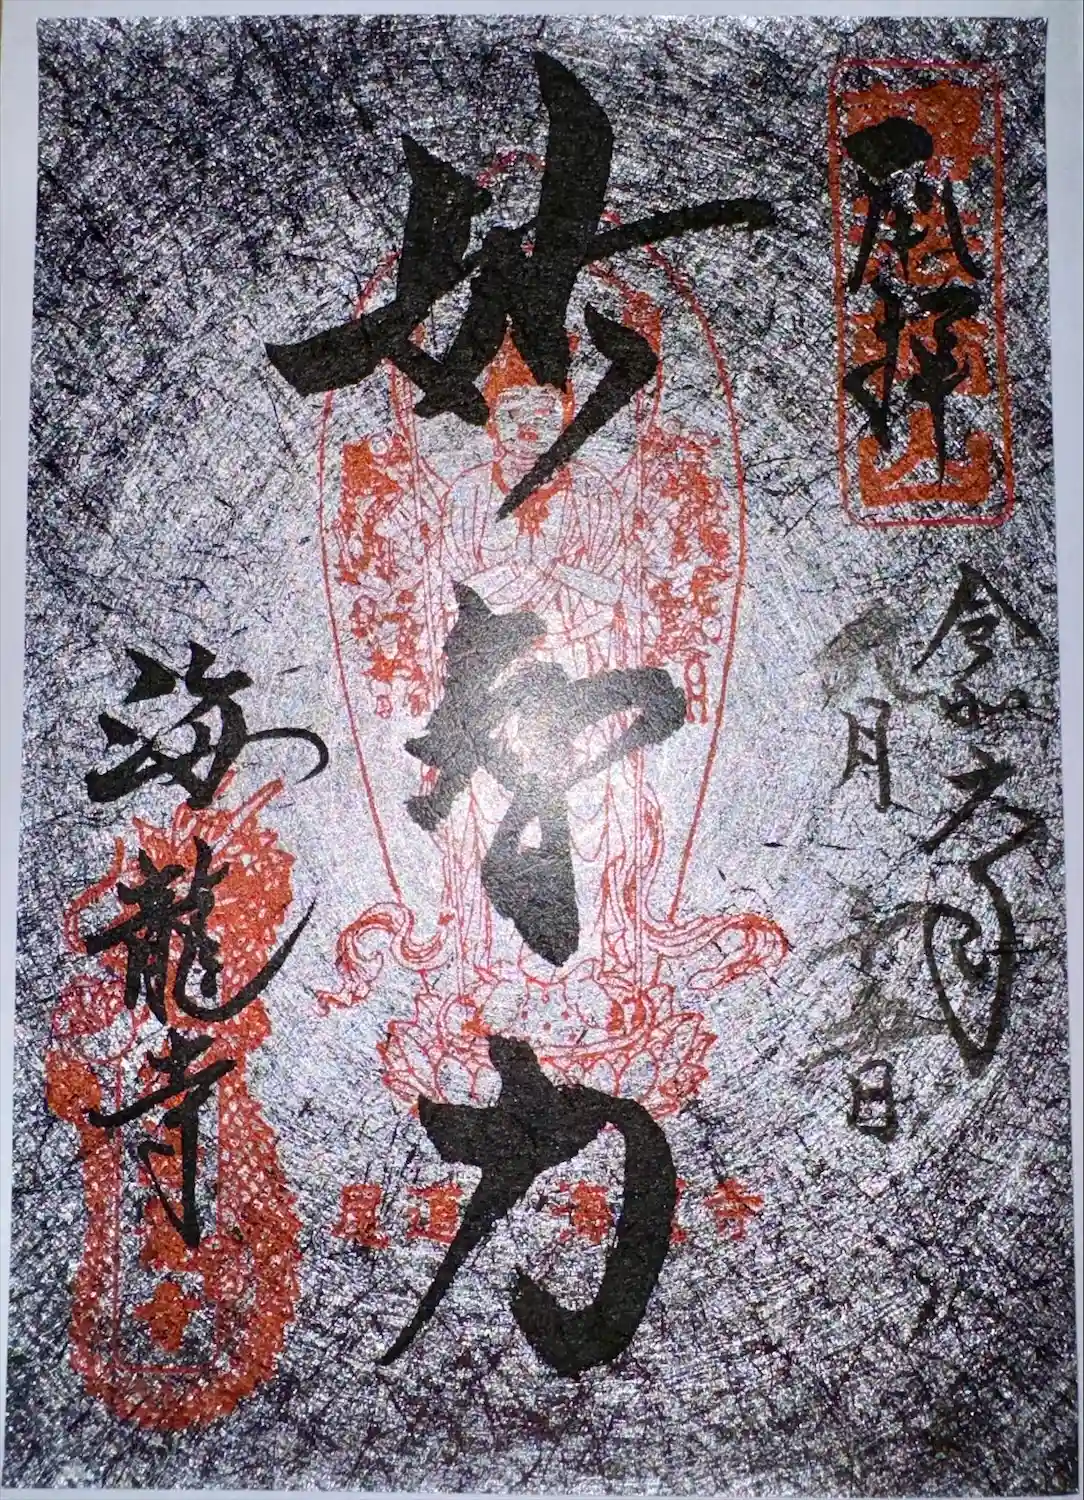 奉拝
令和六年
九月 日
妙智力
海龍寺
尾道 海龍寺